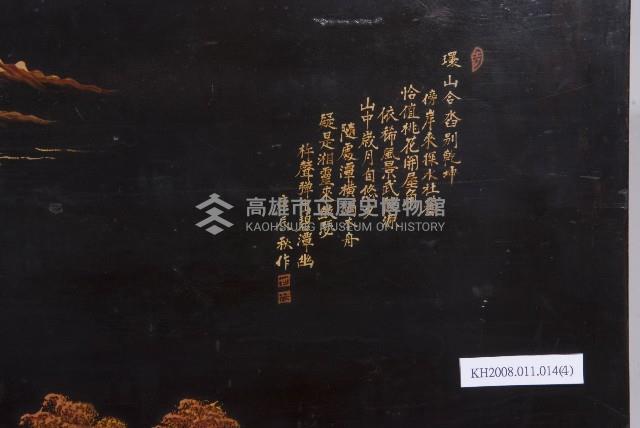 環山合沓別乾坤
傍岸來探水社
恰值桃花開屋角
依稀風景武陵
山中歲月自悠
隨處潭橫獨木舟
疑是湘靈來
杵聲 潭幽
庚辰秋作
高雄市立歷史博物館
KAOHSIUNG MUSEUM OF HISTORY
KH2008.011.014(4)